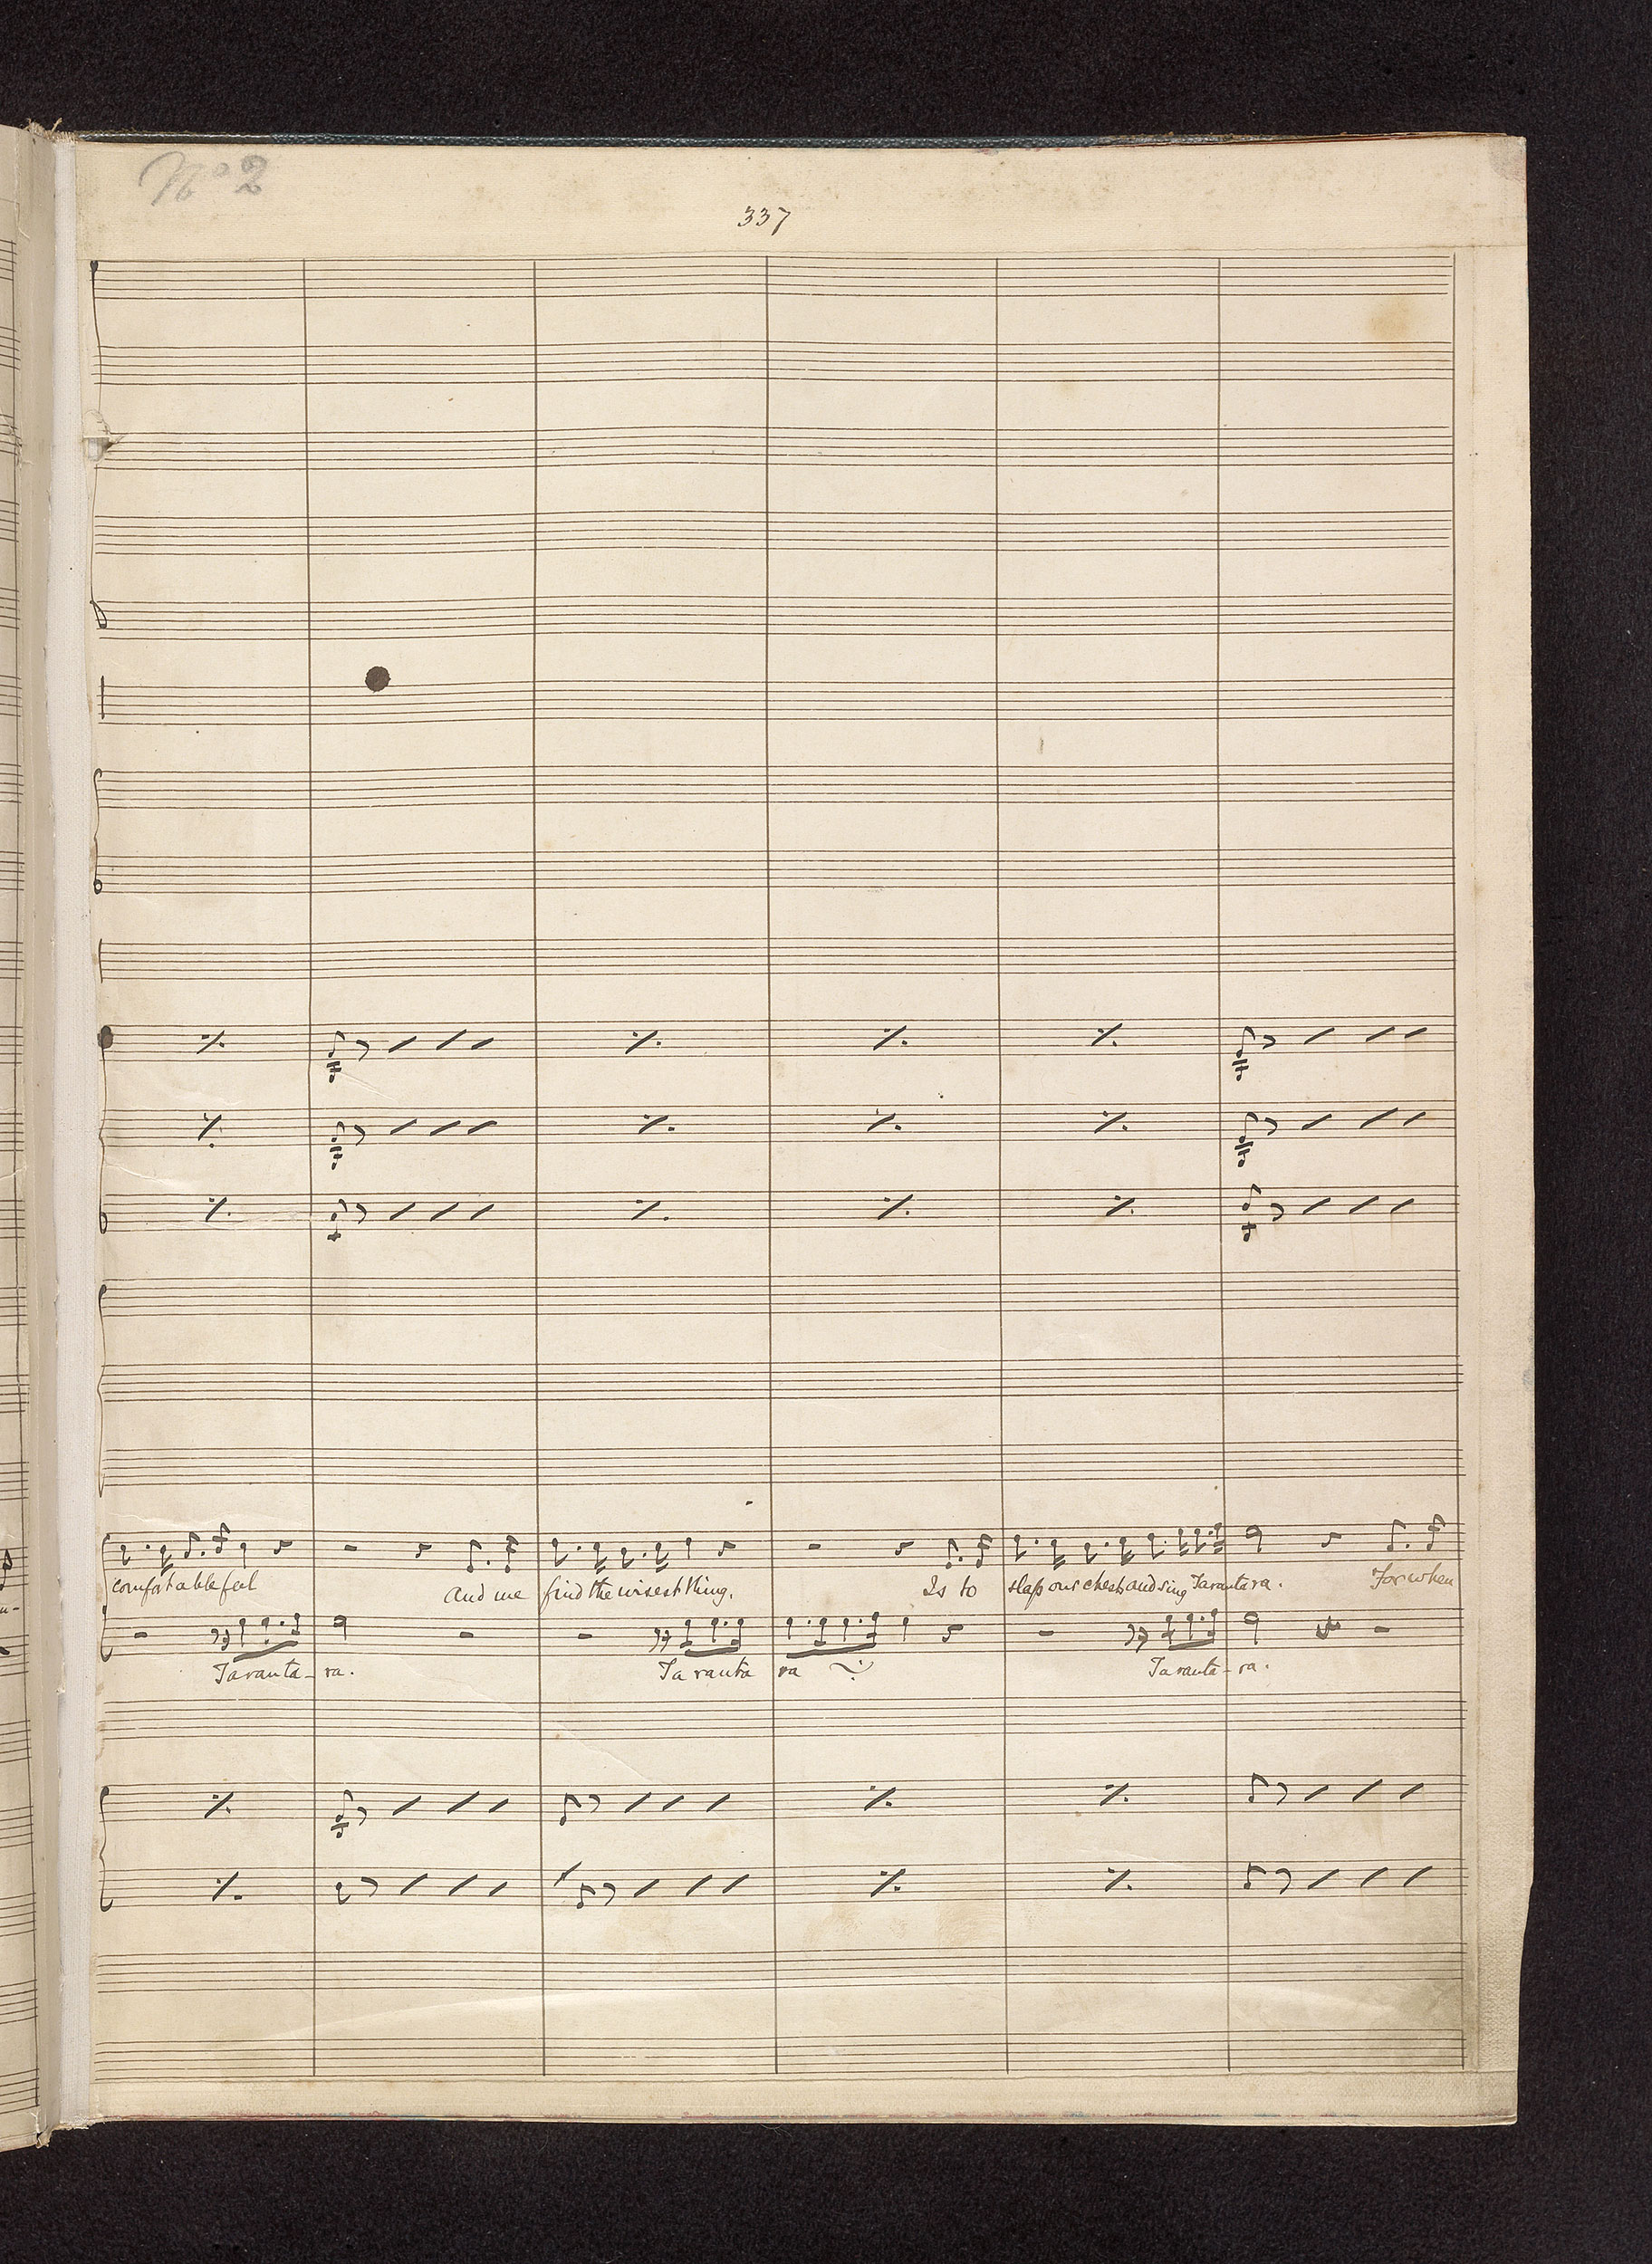 No 2
337
comfortable feel and we find the wisest thing. Is to slap our chest and sing Tarantara. For when
Taranta-ra. Taranta ra Taranta-ra.